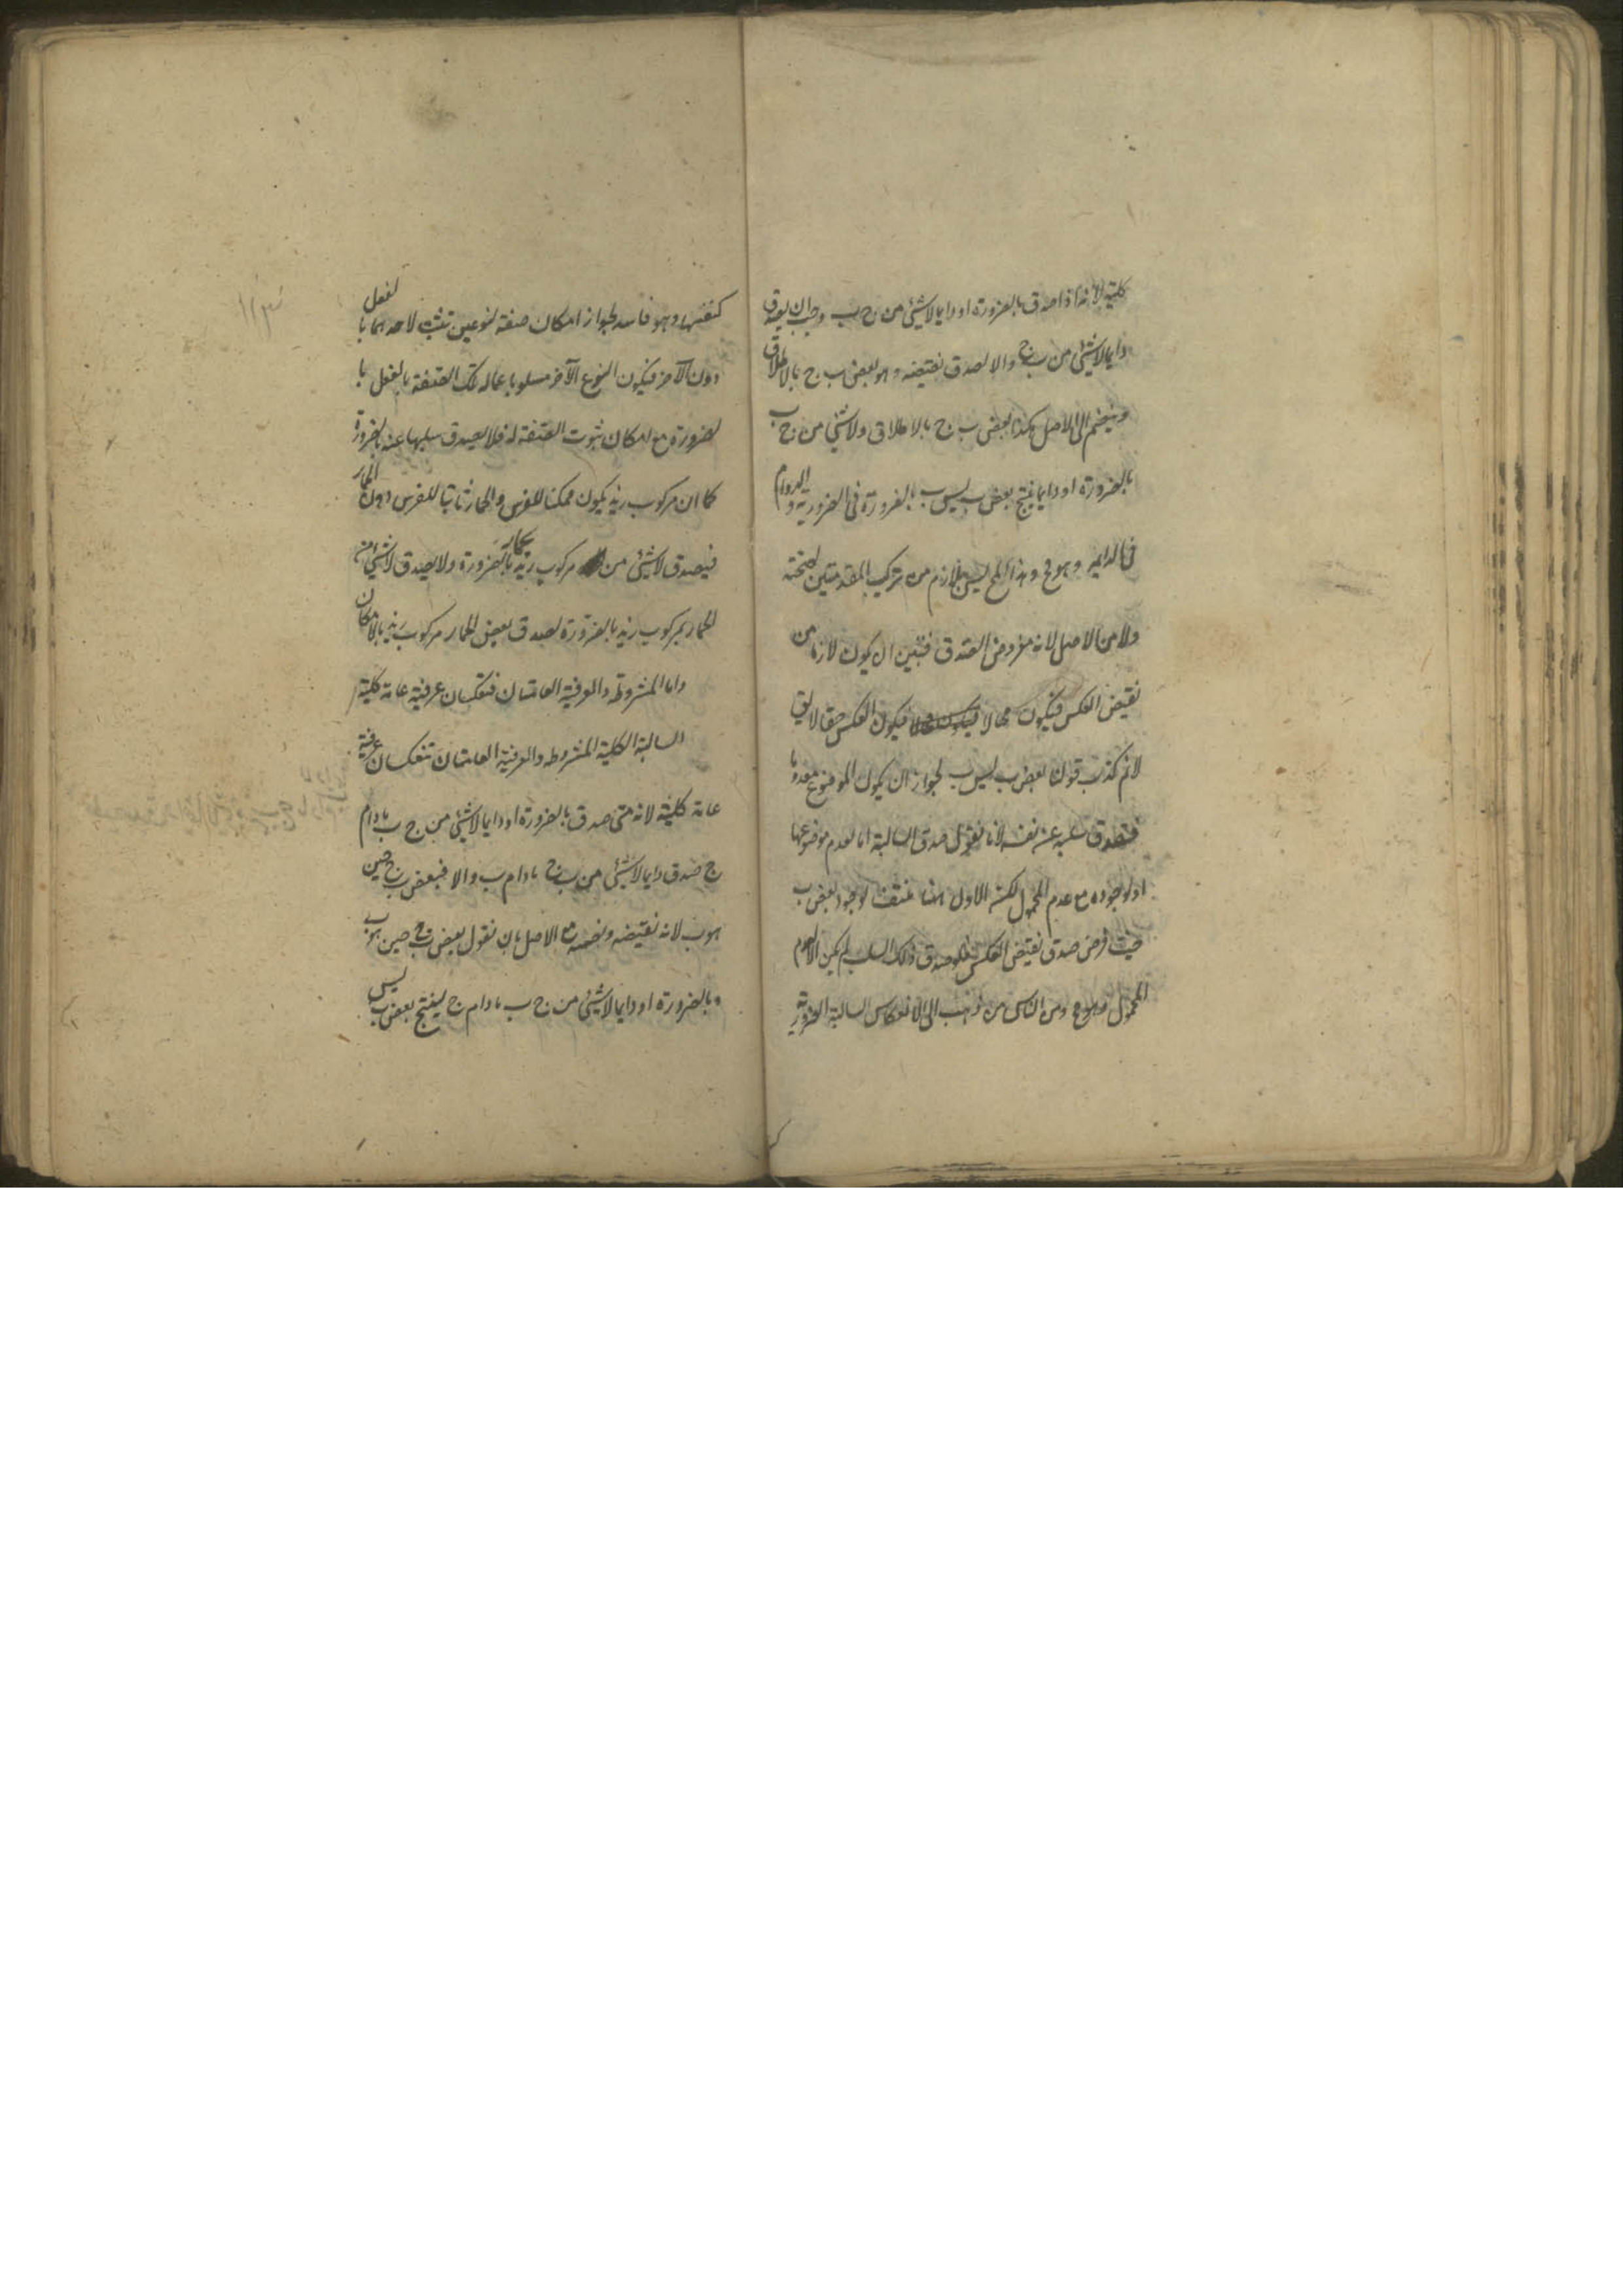 كلية لانه اذا صدق بالضرورة او دايما لاشئ من ج ب وجب ان يصدق
دايما لاشئ من ب ج والا لصدق نقيضه وهو بعض ب ج بالاطلاق
وينضم الى الاصل هكذا بعض ب ج بالاطلاق ولاشئ من ج ب
بالضرورة او دايما ينتج بعض ب ليس ب بالضرورة فى الضرورية و الدوام
فى الدايمة وهو مح وهذا المح ليس بلازم من تركيب المقدمتين لصحته
ولا من الاصل لانه مفروض الصدق فتعين ان يكون لازما من
نقيض العكس فيكون محالا فيكون العكس حقا لا يق
لانم كذب قولنا بعض ب ليس ب لجواز ان يكون الموضوع معدوما
فيصدق سلبه عن نفسه لانا نقول صدق السالبة اما لعدم موضوعها
او لوجوده مع عدم المحمول لكن الاول هنا منتف لوجود بعض ب
حيث فرض صدق نقيض العكس فلو صدق ذلك السلب لم يكن الا لعدم
المحمول وهو مح ومن الناس من ذهب الى انعكاس السالبة الضرورية
كنفسها وهو فاسد لجواز امكان صفة لنوعين تثبت لاحدهما با لفعل
دون الآخر فيكون النوع الآخر مسلوبا عما له تلك الصفة بالفعل با
لضرورة مع امكان ثبوت الصفة له فلا يصدق سلبها عنه بالضرورة
كما ان مركوب زيد يكون ممكنا للفرس والحمار ثابتا للفرس دون الحمار
فيصدق لاشئ من مركوب زيد بحمار بالضرورة ولا يصدق لاشئ من
الحمار بمركوب زيد بالضرورة لصدق بعض الحمار مركوب زيد بالامكان
واما المشروطة والعرفية العامتان فتنعكسان عرفية عامة كلية
السالبة الكلية المشروطة والعرفية العامتان تنعكسان عرفية
عامة كلية لانه متى صدق بالضرورة او دايما لاشئ من ج ب مادام
ج صدق دايما لاشئ من ب ج مادام ب والا فبعض ب ج حين
هو ب لانه نقيضه ونضمه مع الاصل بان نقول بعض ب ج حين هو ب
وبالضرورة او دايما لاشئ من ج ب مادام ج ينتج بعض ب ليس